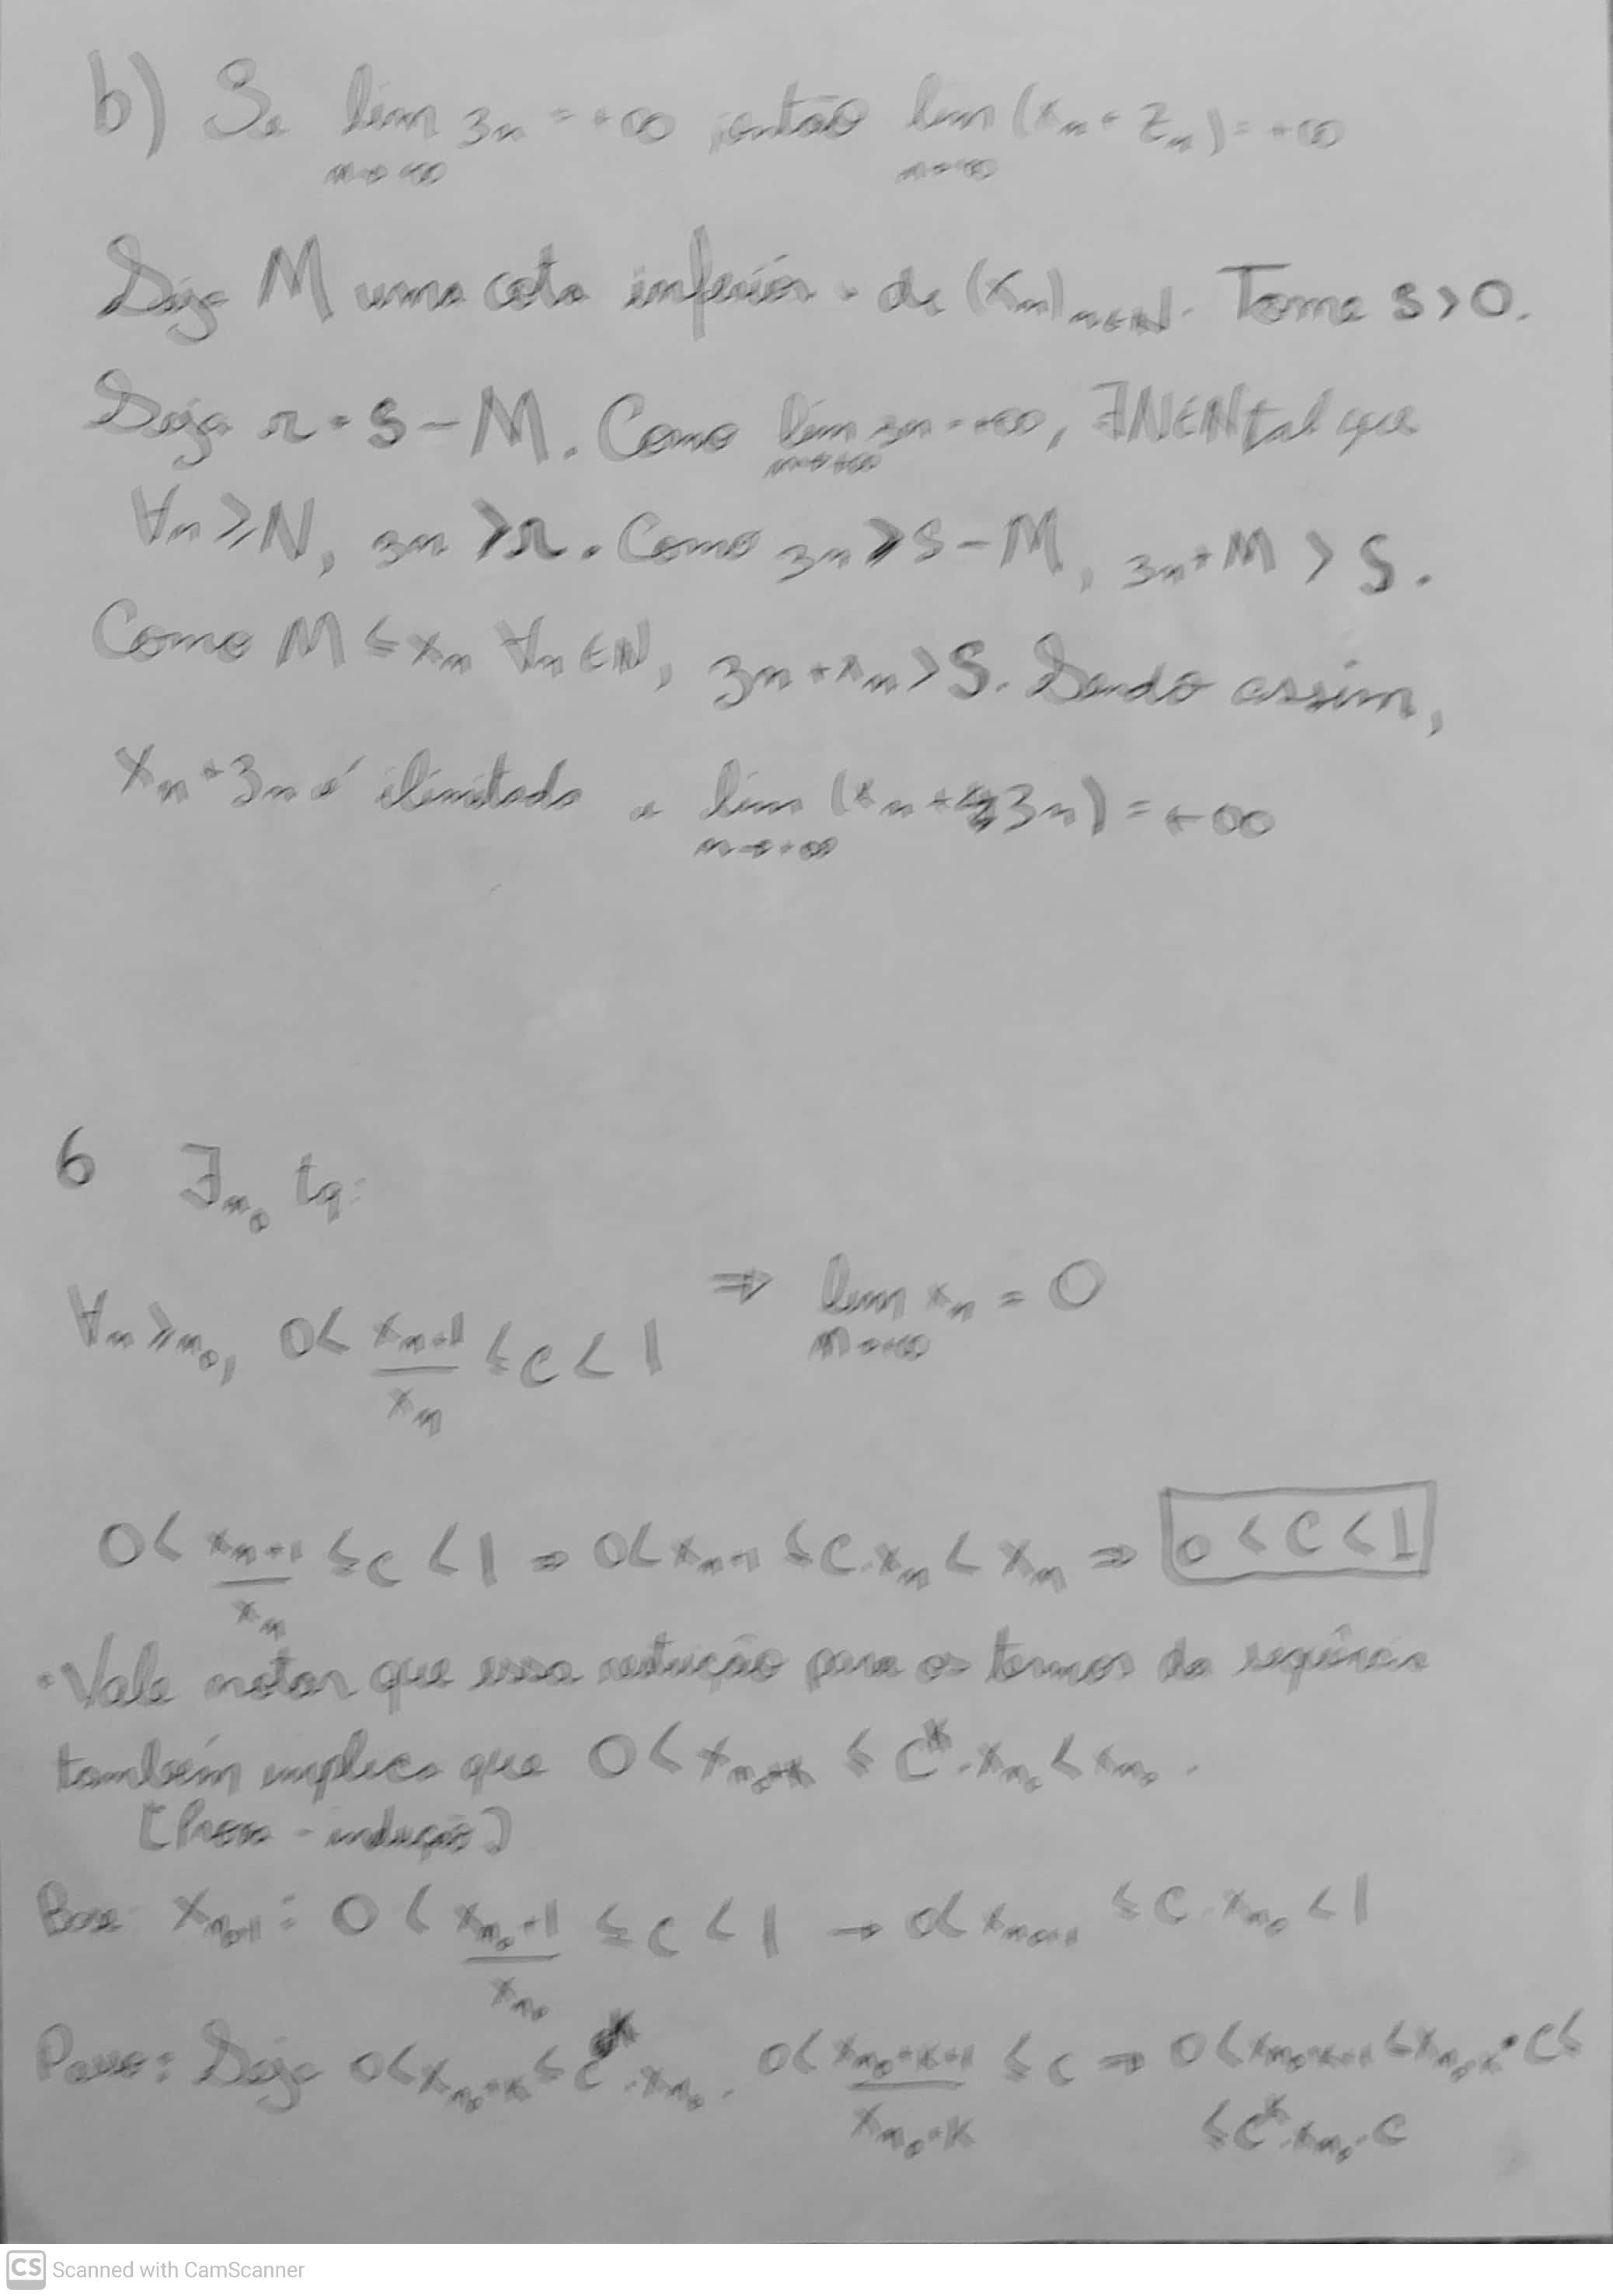 b) Se lim zn = +∞ então lim (xn + zn) = +∞
n→+∞ n→+∞
Seja M uma cota inferior de (xn)n∈ℕ. Tome s>0.
Seja r = s - M. Como lim zn = +∞, ∃N∈ℕ tal que
n→+∞
∀n ≥ N, zn > r. Como zn > s - M, zn + M > s.
Como M ≤ xn ∀n ∈ ℕ, zn + xn > s. Sendo assim,
xn + zn é ilimitado e lim (xn + zn) = +∞
n→+∞
6 ∃n₀ tq:
∀n ≥ n₀, 0 < xn+1/xn ≤ c < 1 ⇒ lim xn = 0
n→+∞
0 < xn+1/xn ≤ c < 1 ⇒ 0 < xn+1 ≤ c·xn < xn ⇒ 0 < c < 1
• Vale notar que essa para os termos da
também implica que 0 < xn₀+k ≤ c^k · xn₀ < xn₀.
[Prova - indução]
Base: xn₀+1: 0 < xn₀+1/xn₀ ≤ c < 1 → 0 < xn₀+1 ≤ c·xn₀ < 1
Passo: Seja 0 < xn₀+k ≤ c^k · xn₀. 0 < xn₀+k+1/xn₀+k ≤ c ⇒ 0 < xn₀+k+1 ≤ xn₀+k · c ≤
≤ c^k · xn₀ · c
CS Scanned with CamScanner